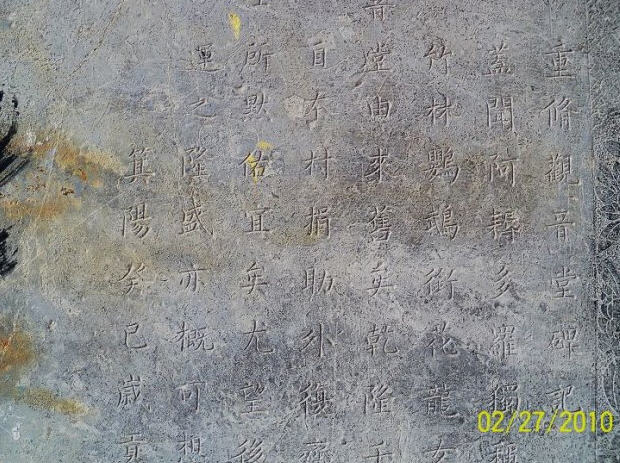 重脩觀音堂碑記
蓋聞阿耨多羅獨稱
竹林鸚鵡銜花龍女
音堂由來舊矣乾隆
自本村捐助外復
所默佑宜矣尤望後
運之隆盛亦概可想
箕陽癸巳歲貢
02/27/2010